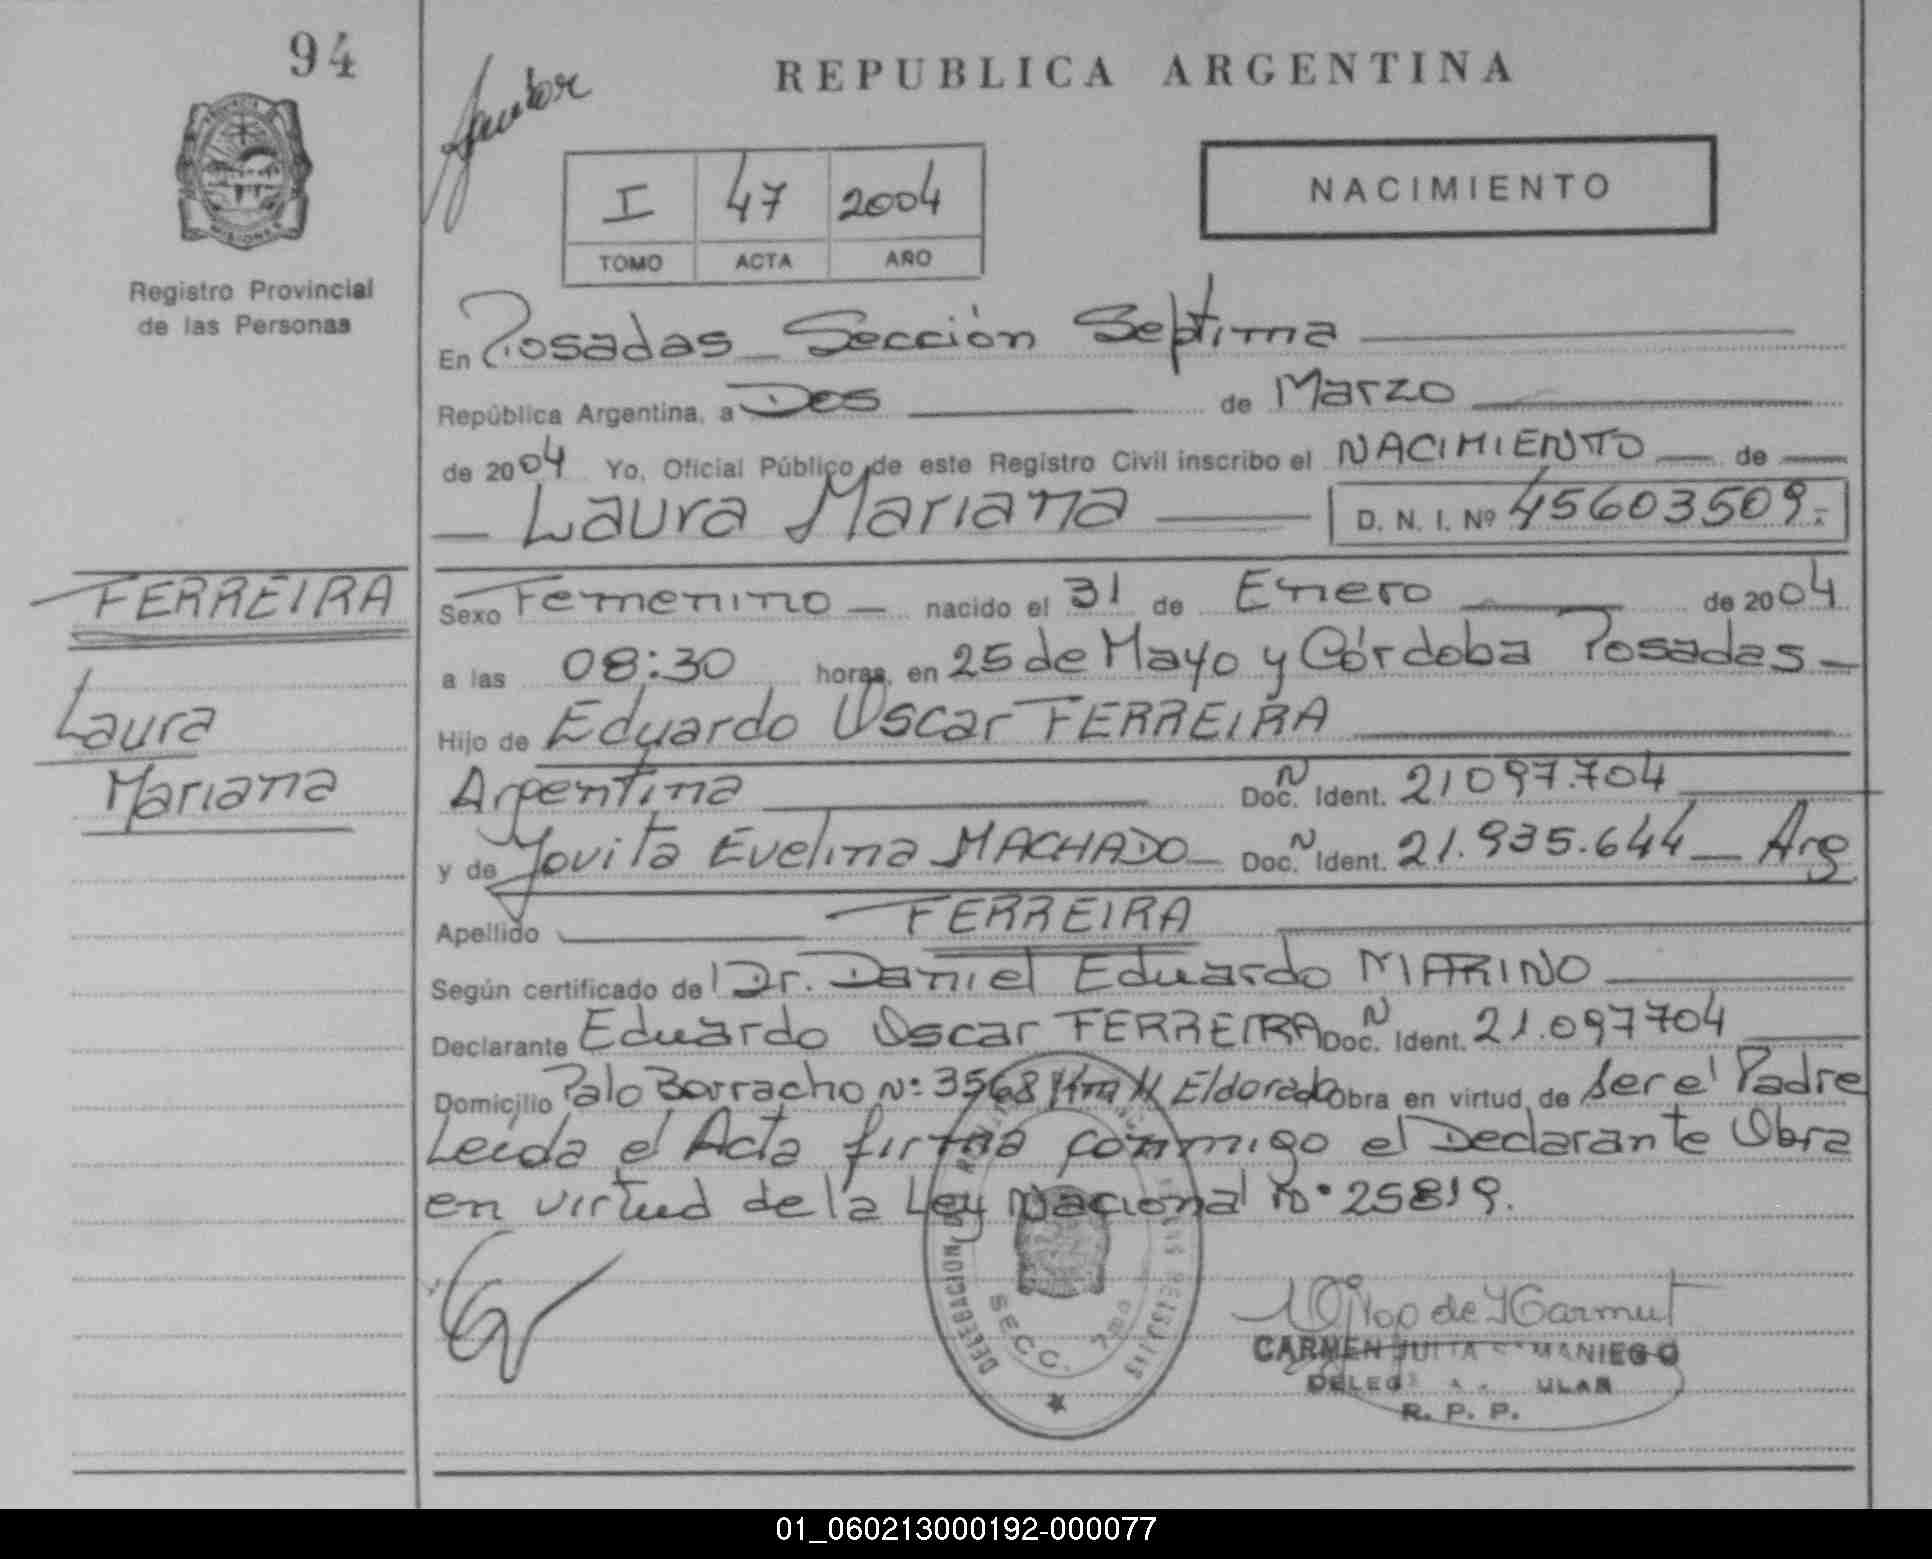 94
REPUBLICA ARGENTINA
NACIMIENTO
I 47 2004
TOMO ACTA AÑO
MISIONES
Registro Provincial
de las Personas
En Posadas Sección Septima
República Argentina, a Dos de Marzo
de 2004 Yo, Oficial Público de este Registro Civil inscribo el NACIMIENTO de
Laura Mariana D. N. I. Nº 45603509.-
FERREIRA
Laura
Mariana
Sexo Femenino nacido el 31 de Enero de 2004
a las 08:30 horas, en 25 de Mayo y Córdoba Posadas
Hijo de Eduardo Oscar FERREIRA
Argentina Doc. N Ident. 21097.704
y de Jovita Evelina MACHADO Doc. N Ident. 21.935.644 Arg.
Apellido FERREIRA
Según certificado de Dr. Daniel Eduardo MARINO
Declarante Eduardo Oscar FERREIRA Doc. N Ident. 21.097704
Domicilio Palo Borracho Nº: 3568 Eldorado Obra en virtud de ser el Padre
Leída el Acta firma conmigo el Declarante Obra
en virtud de la Ley Nacional Nº 25819.
DELEGACION
SECC. 7ma
CARMEN JULIA SAMANIEGO
R. P. P.
01_060213000192-000077